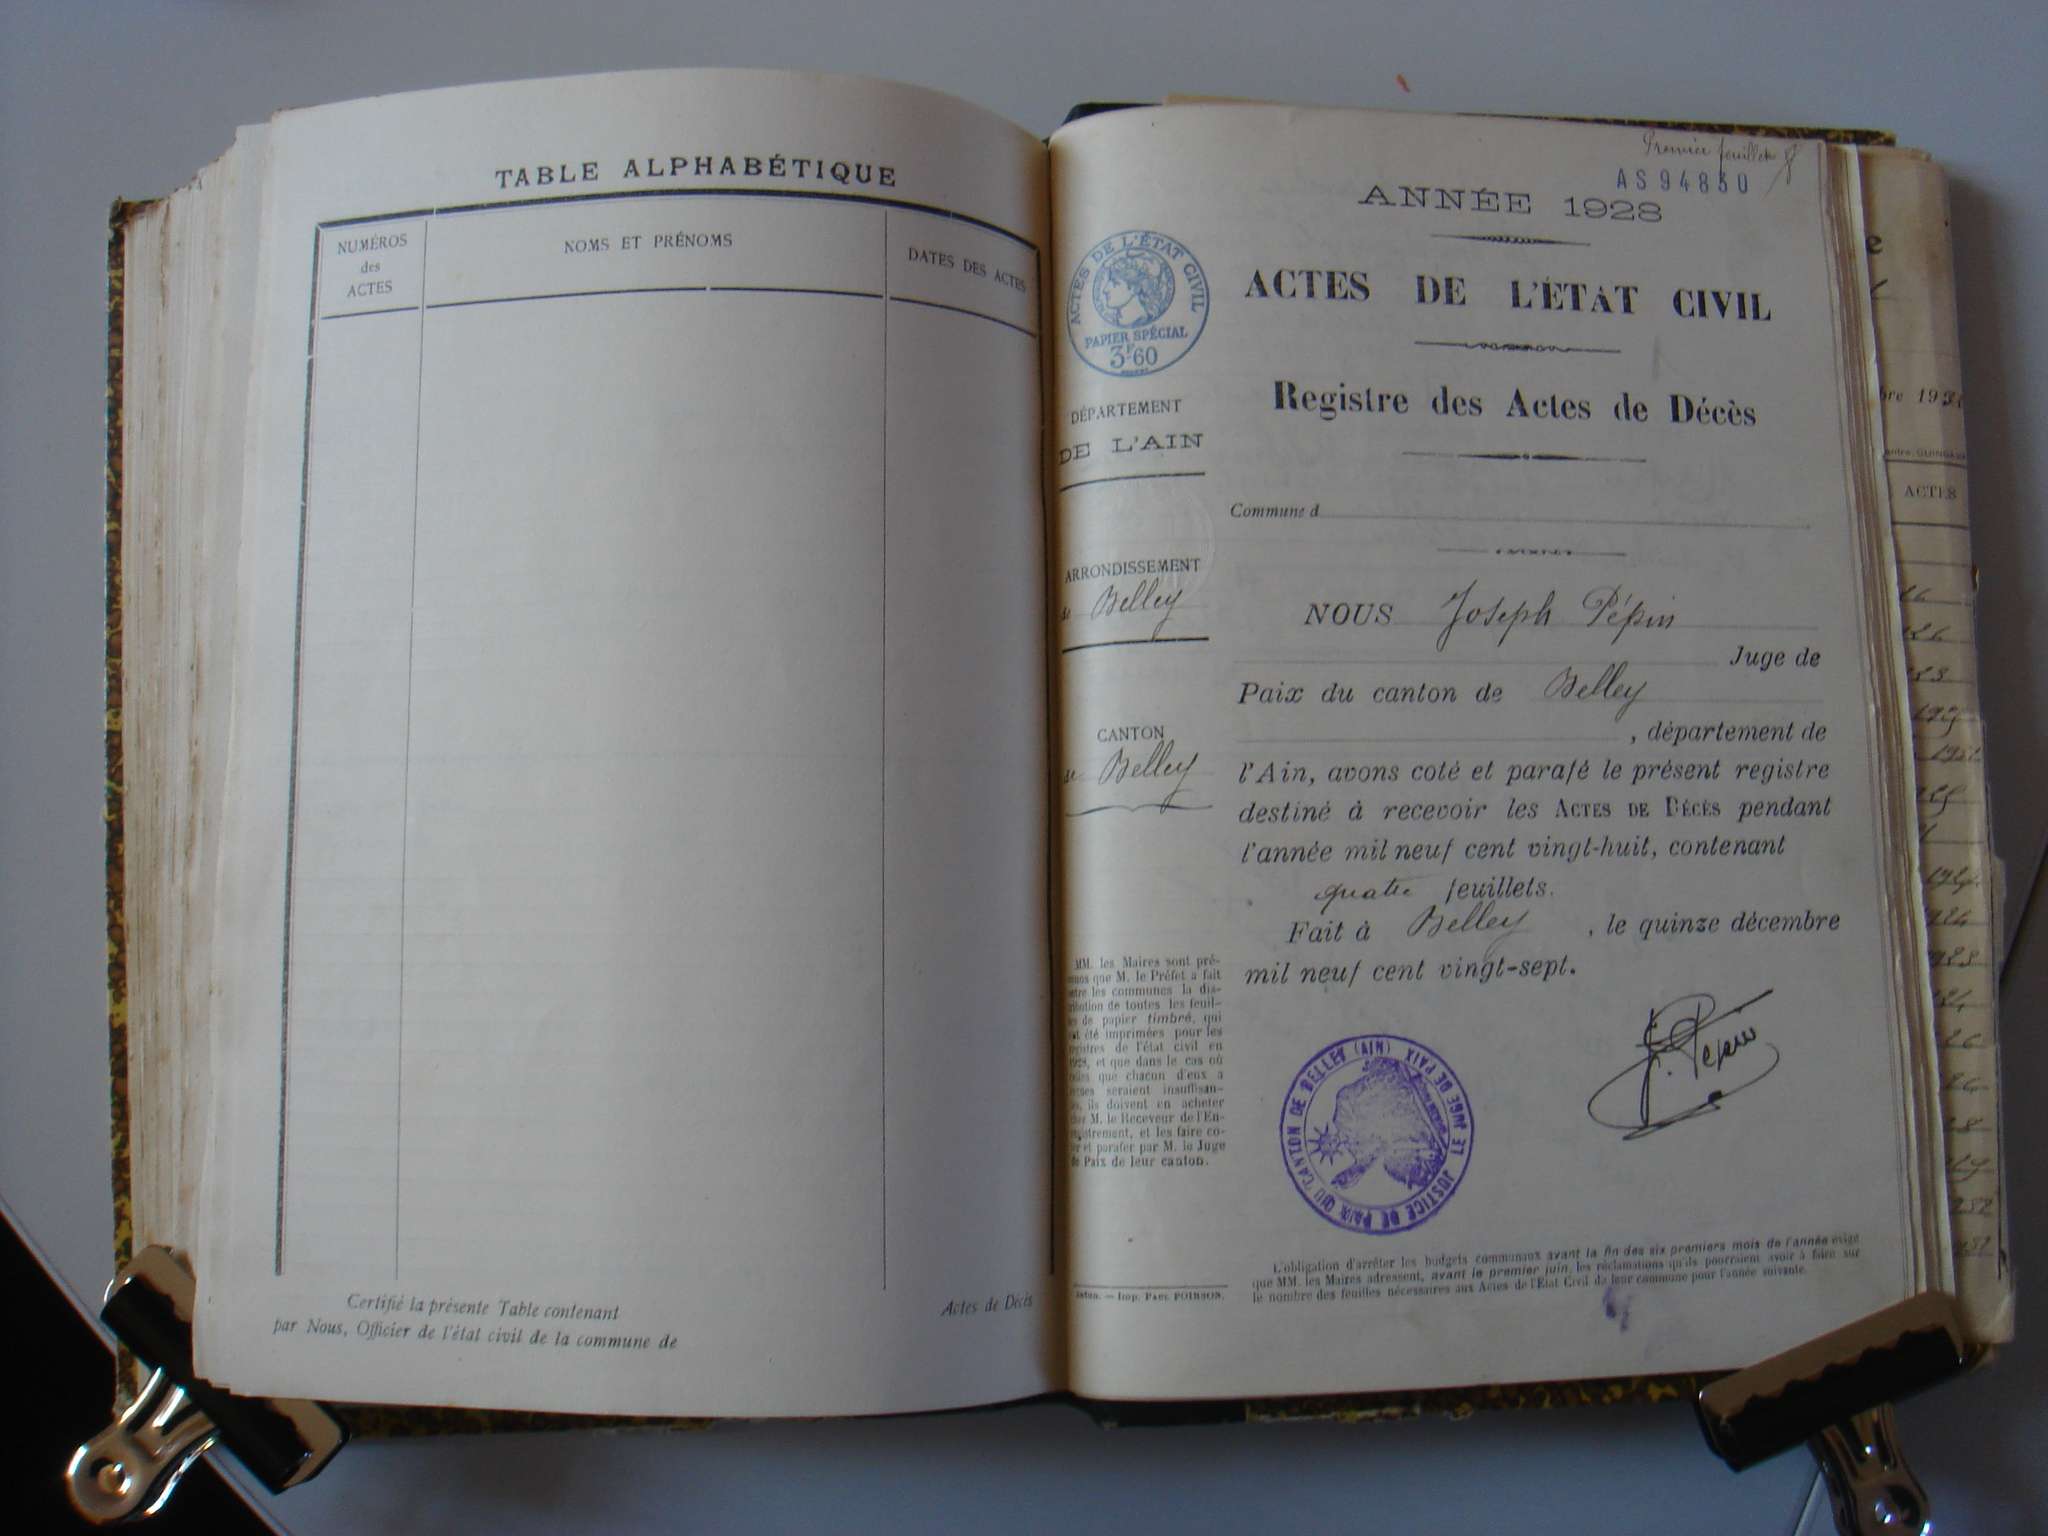 TABLE ALPHABÉTIQUE
NUMÉROS
des
ACTES
NOMS ET PRÉNOMS
DATES DES ACTES
Certifié la présente Table contenant
par Nous, Officier de l'état civil de la commune de
Actes de Décès
Premier feuillet
AS94830
ANNÉE 1928
ACTES DE L'ÉTAT CIVIL
PAPIER SPÉCIAL
3F60
ACTES DE L'ÉTAT CIVIL
Registre des Actes de Décès
DÉPARTEMENT
DE L'AIN
Commune d
ARRONDISSEMENT
de Belley
CANTON
de Belley
NOUS Joseph Pépin
Juge de
Paix du canton de Belley
, département de
l'Ain, avons coté et parafé le présent registre
destiné à recevoir les ACTES DE DÉCÈS pendant
l'année mil neuf cent vingt-huit, contenant
quatre feuillets.
Fait à Belley, le quinze décembre
mil neuf cent vingt-sept.
MM. les Maires sont pré-
que M. le Préfet a fait
les communes la dis-
de toutes les feuil-
de papier timbré, qui
été imprimées pour les
de l'état civil en
et que dans le cas où
que chacun d'eux a
seraient insuffisan-
ils doivent en acheter
M. le Receveur de l'En-
et les faire co-
et parafer par M. le Juge
de Paix de leur canton.
J. Pépin
JUSTICE DE PAIX DU CANTON DE BELLEY (AIN)
LE JUGE DE PAIX
L'obligation d'arrêter les budgets communaux avant la fin des six premiers mois de l'année exige
que MM. les Maires adressent, avant le premier juin, les réclamations qu'ils pourraient avoir à faire sur
le nombre des feuilles nécessaires aux Actes de l'État Civil de leur commune pour l'année suivante.
Imp. PAUL POIRSON.
ACTES